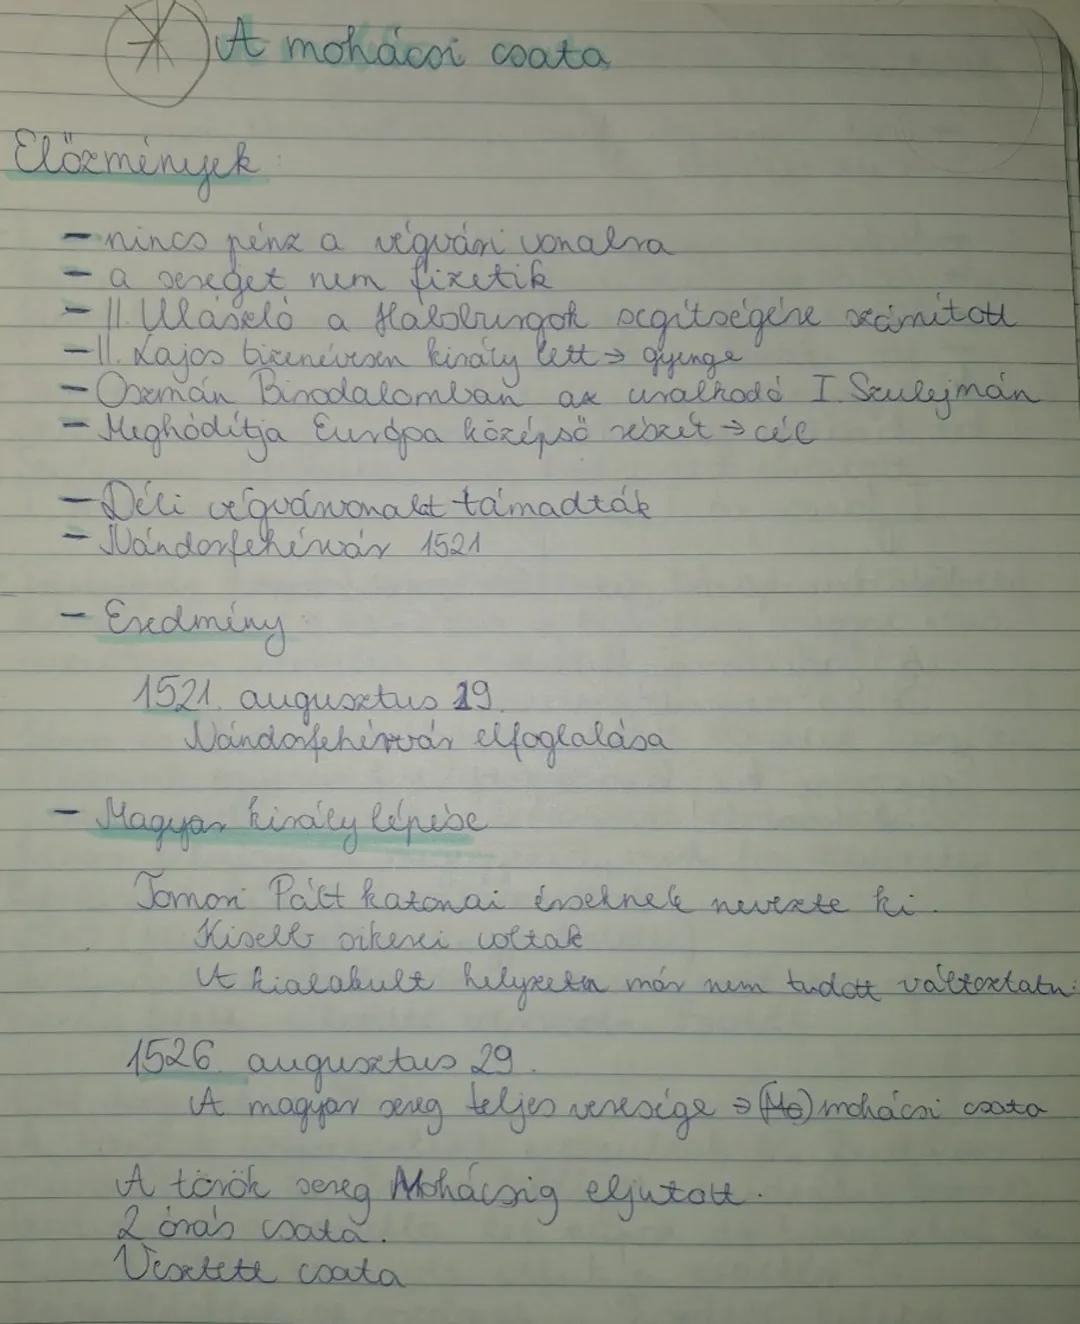 A mohácsi csata
Előzmények:
- nincs pénz a végvári vonalra
- a sereget nem fizetik
- II. Ulászló a Habsburgok segítségére számított
- II. Lajos tizenévesen király lett → gyenge
- Oszmán Birodalomban az uralkodó I. Szulejmán
- Meghódítja Európa középső részét → cél
- Déli végvárvonalat támadták
- Nándorfehérvár 1521
- Eredmény:
1521. augusztus 29.
Nándorfehérvár elfoglalása
- Magyar király lépése
Tomori Pált katonai érseknek nevezte ki.
Kisebb sikerei voltak
A kialakult helyzeten már nem tudott változtatni
1526. augusztus 29.
A magyar sereg teljes veresége → (Mo) mohácsi csata
A török sereg Mohácsig eljutott.
2 órás csata.
Vesztett csata